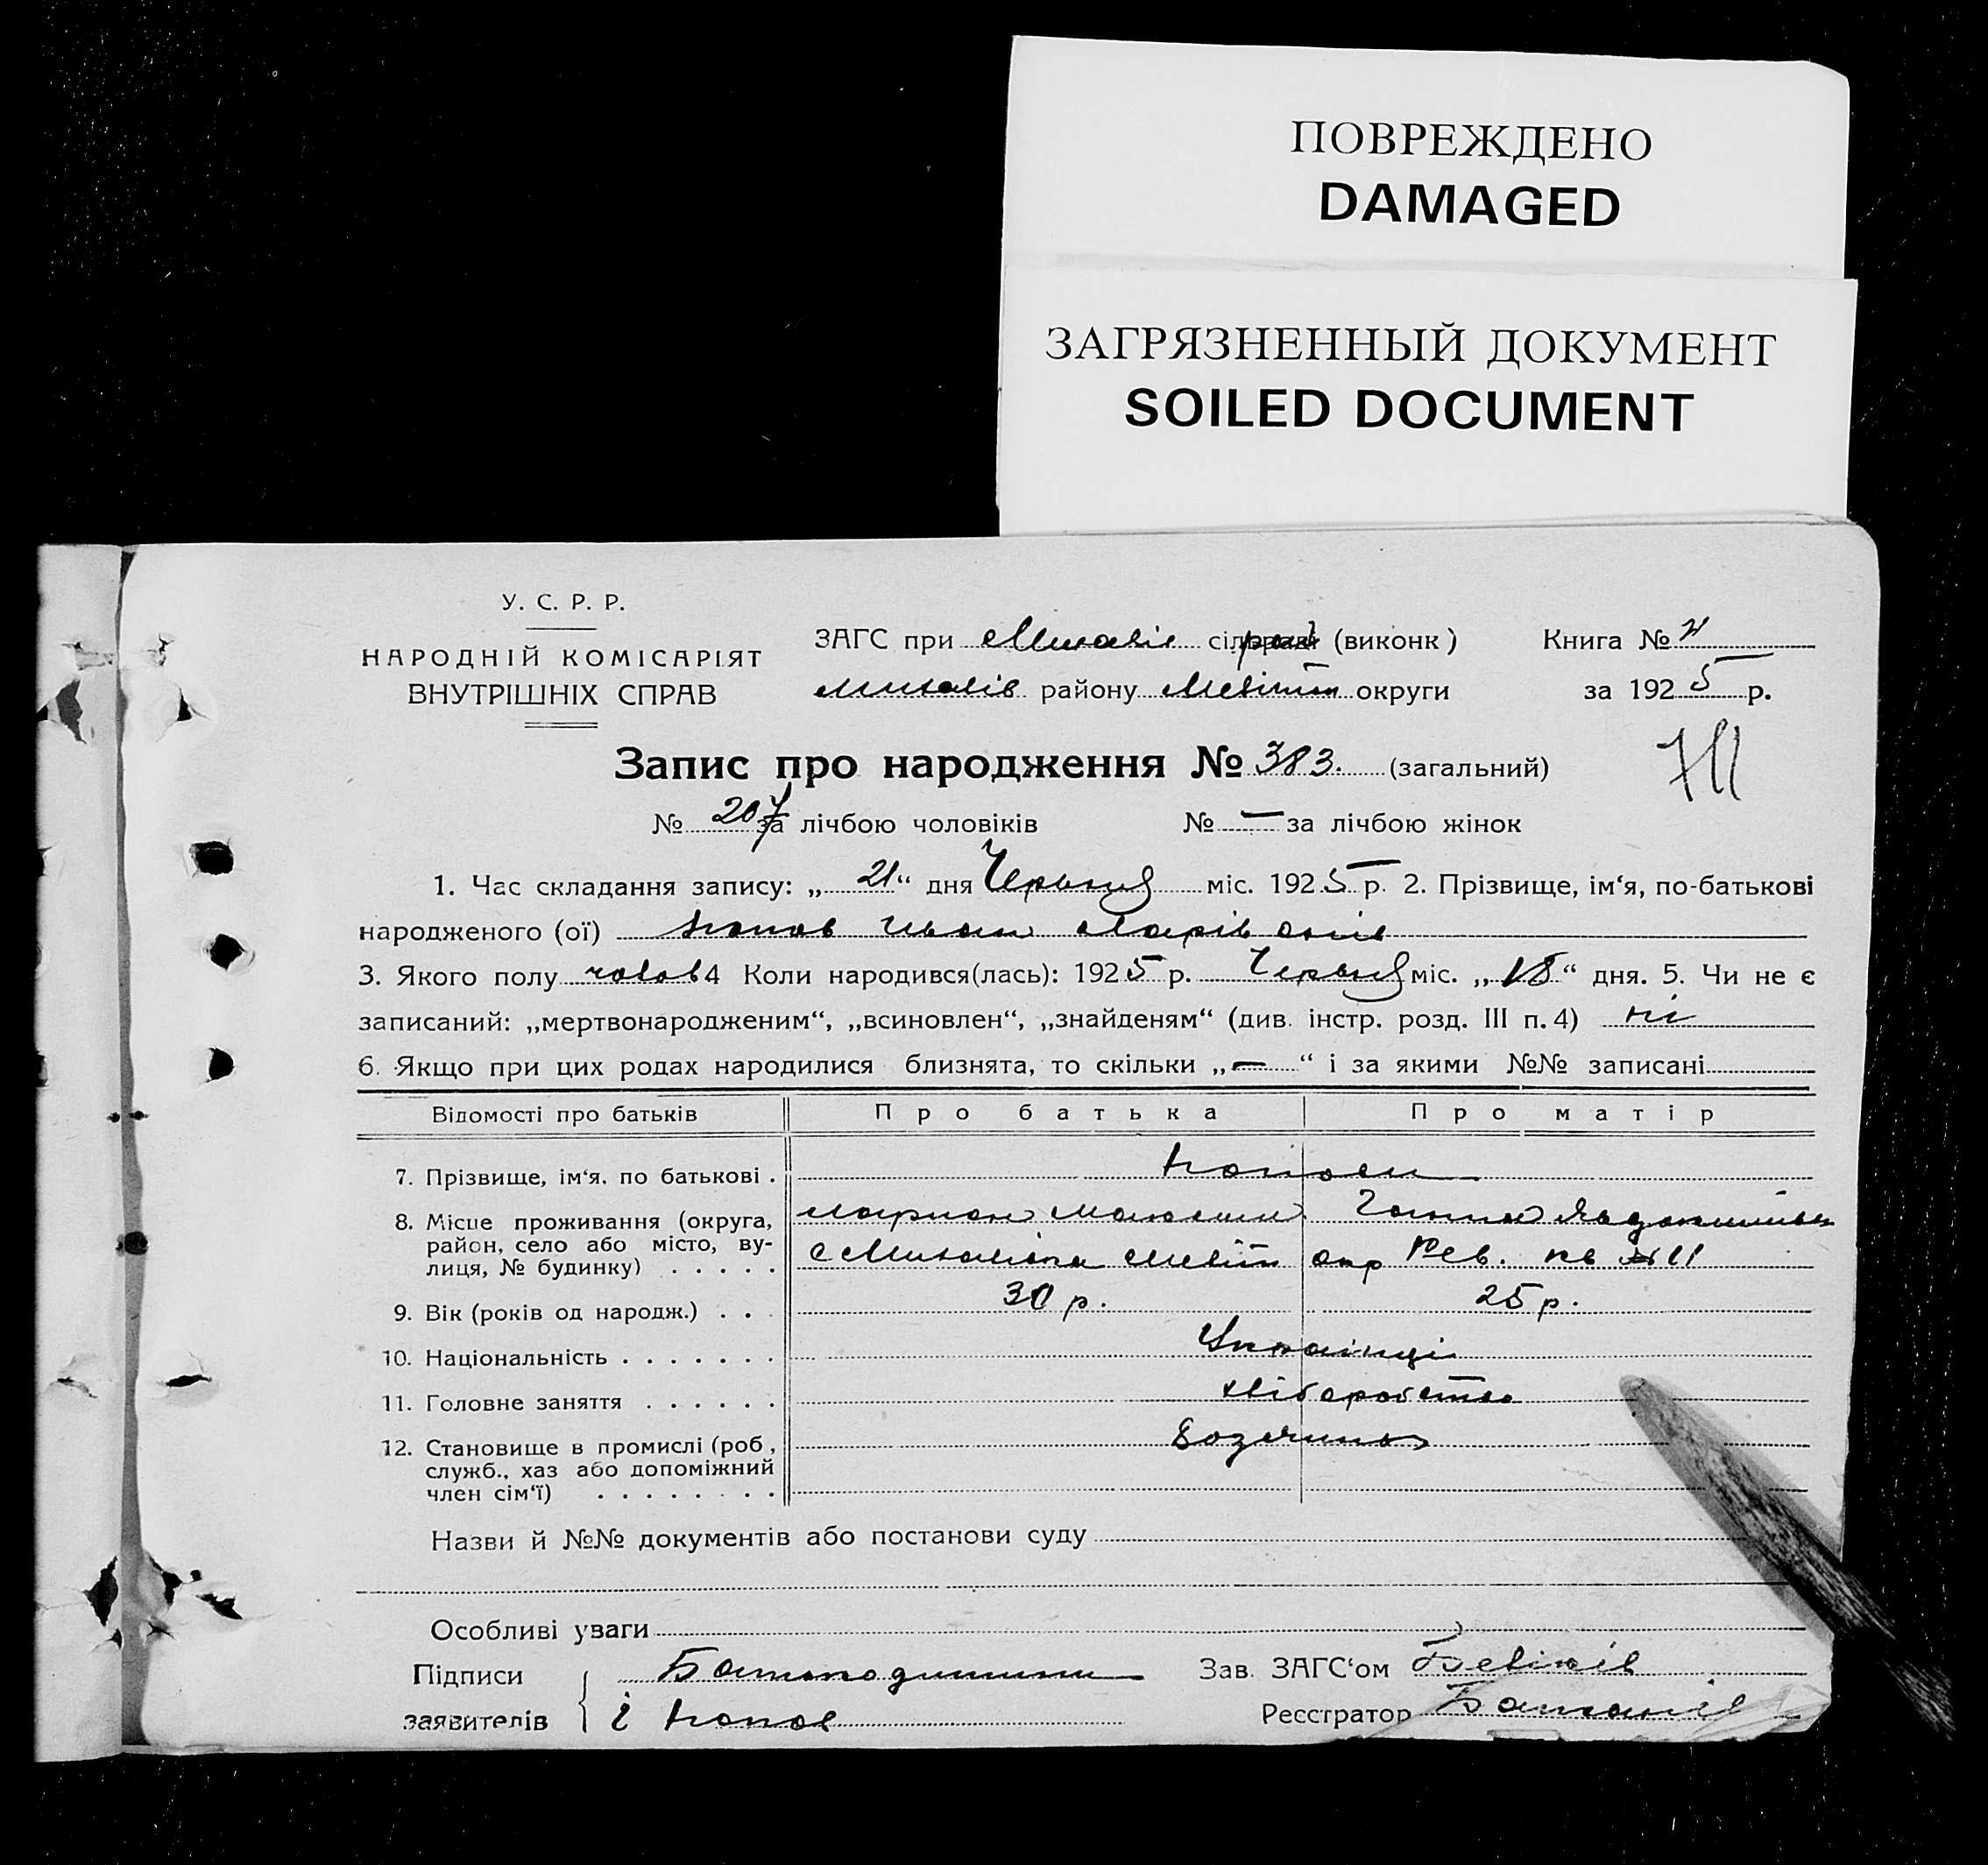 ПОВРЕЖДЕНО
DAMAGED
ЗАГРЯЗНЕННЫЙ ДОКУМЕНТ
SOILED DOCUMENT
У. С. Р. Р.
НАРОДНІЙ КОМІСАРІЯТ
ВНУТРІШНІХ СПРАВ
ЗАГС при сільраді (виконк)
району Меліт округи
Книга №
за 1925 р.
Запис про народження № 383. (загальний)
№ 207 за лічбою чоловіків № — за лічбою жінок
1. Час складання запису: „21“ дня Червня міс. 1925 р. 2. Прізвище, ім‘я, по-батькові
народженого (ої) Попов Иван
3. Якого полу чолов 4 Коли народився(лась): 1925 р. Червня міс. „18“ дня. 5. Чи не є
записаний: „мертвонародженим“, „всиновлен“, „знайденям“ (див. інстр. розд. III п. 4) ні
6. Якщо при цих родах народилися близнята, то скільки „—“ і за якими №№ записані
Відомості про батьків Про батька Про матір
7. Прізвище, ім‘я, по батькові . Попови
8. Місце проживання (округа,
район, село або місто, ву-
лиця, № будинку) . . . . . Меліт окр Рев. кв № 11
9. Вік (років од народж.) . . . 30 р. 25 р.
10. Національність . . . . . . . Українці
11. Головне заняття . . . . . . хліборобство
12. Становище в промислі (роб,
служб., хаз або допоміжний
член сім‘ї) . . . . . . . .
Назви й №№ документів або постанови суду
Особливі уваги
Підписи Зав. ЗАГС‘ом
заявителів і Попов Реєстратор